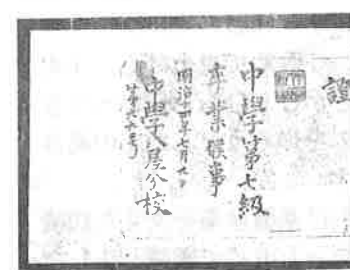 證
中學第七級
卒業候事
明治十四年七月九日
中學八屋分校